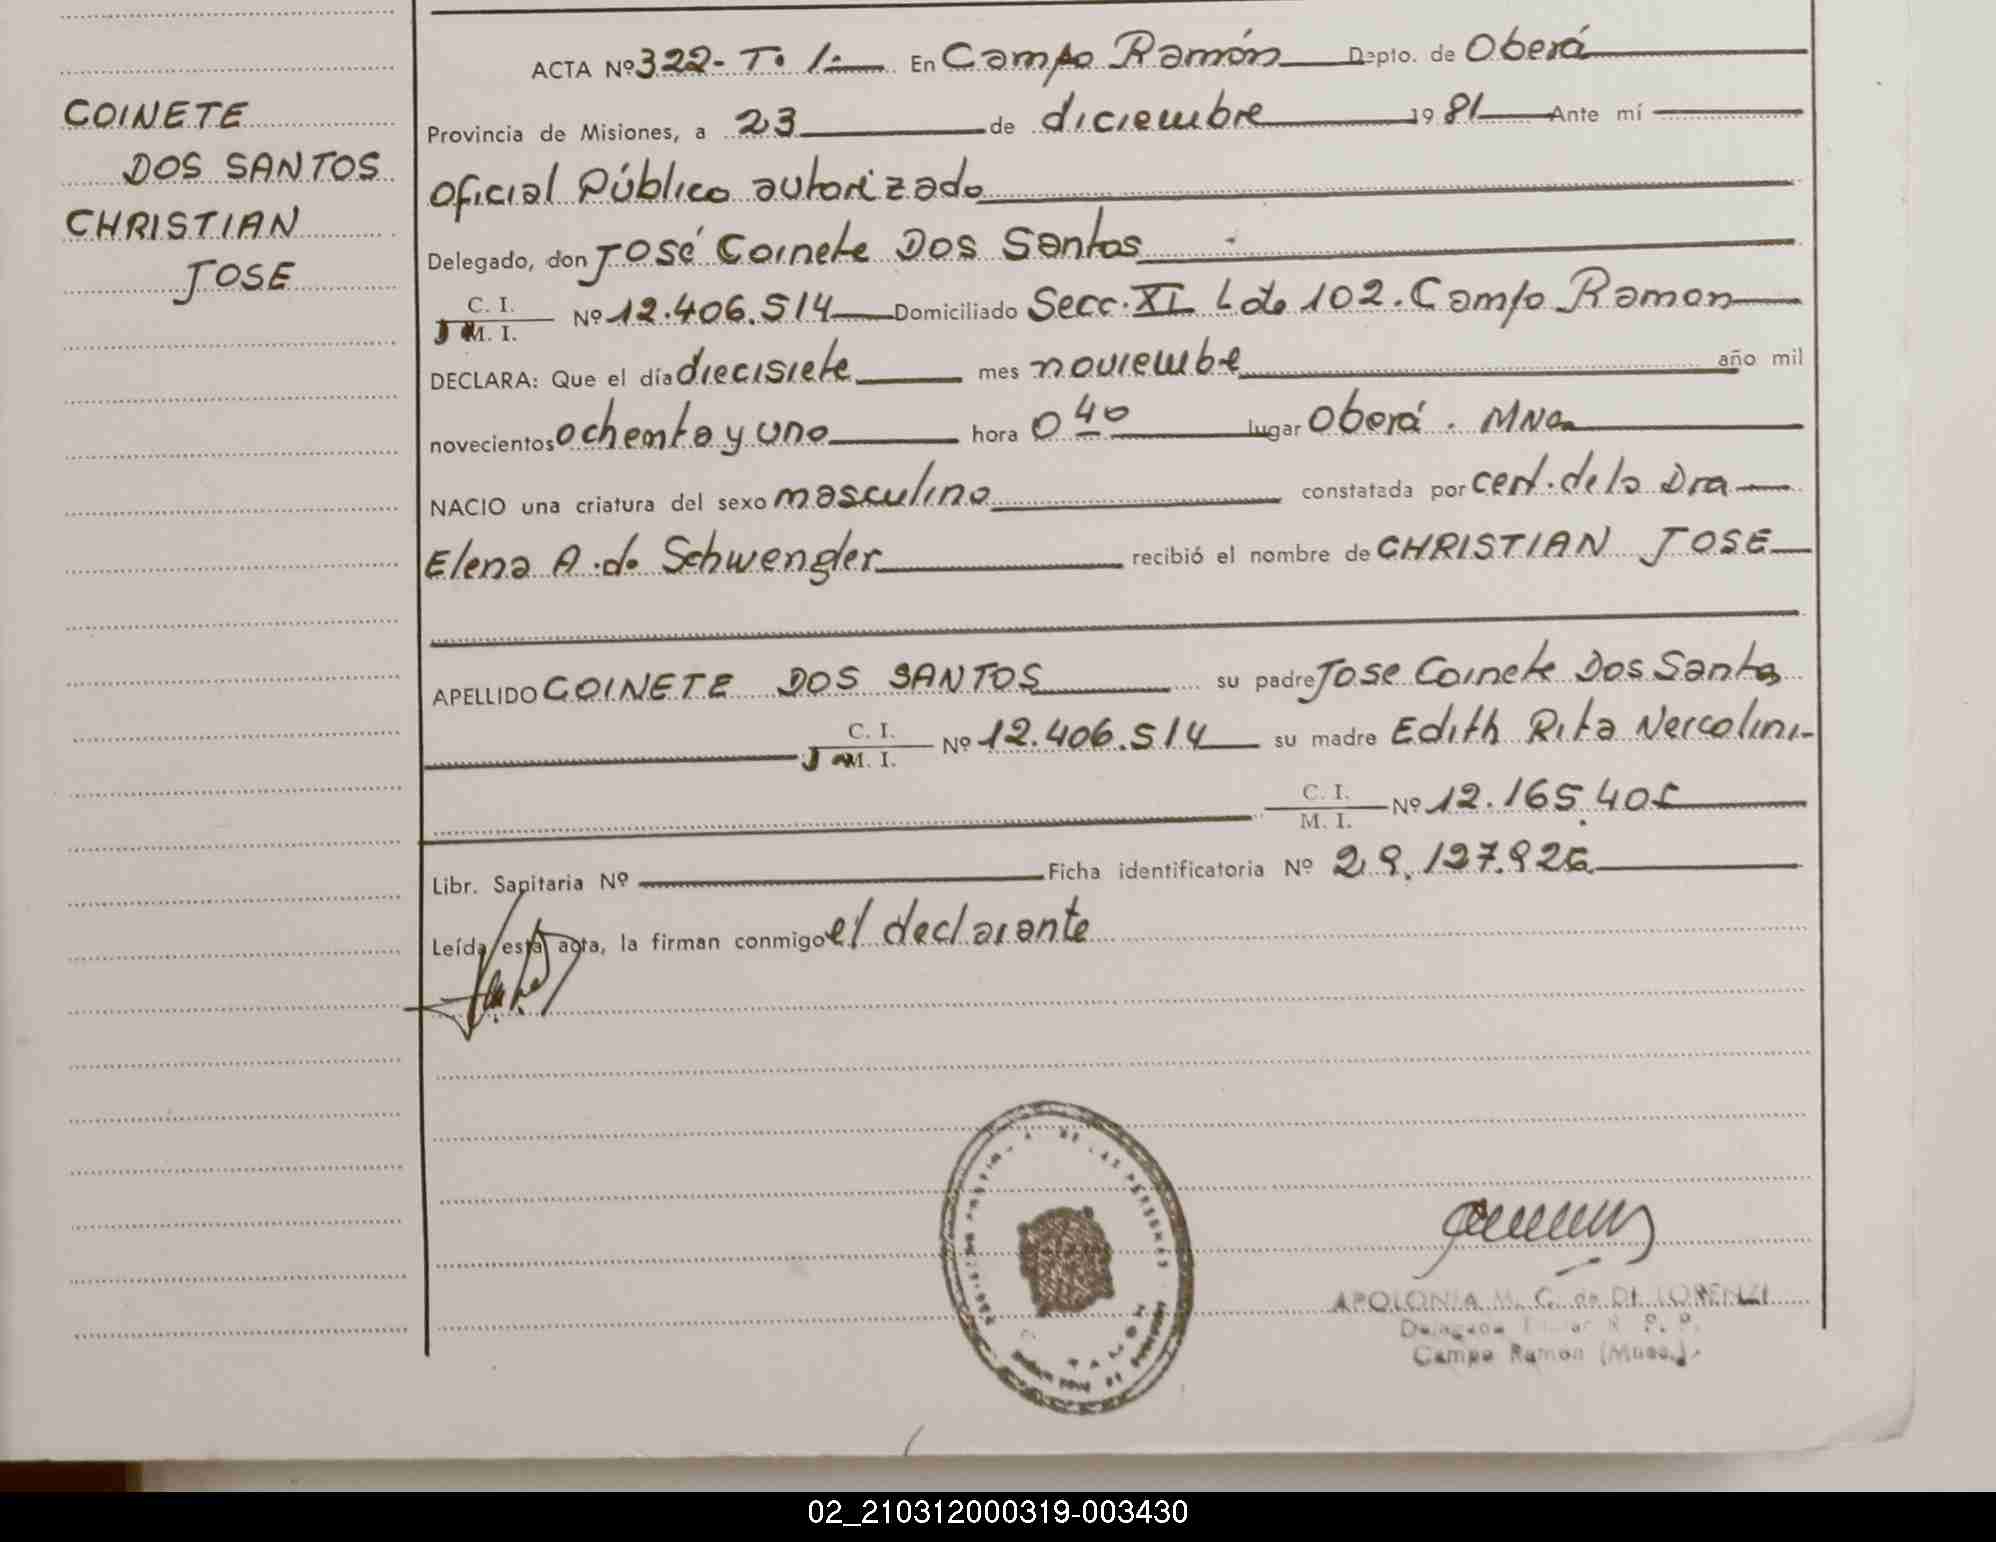 COINETE
DOS SANTOS
CHRISTIAN
JOSE
ACTA Nº 322- T. 1:- En Campo Ramón Depto. de Oberá
Provincia de Misiones, a 23 de diciembre 1981 Ante mí
Oficial Público autorizado
Delegado, don José Coinete Dos Santos
C. I.
M. I. Nº 12.406.514 Domiciliado Secc. XI Lote 102. Campo Ramon
DECLARA: Que el día diecisiete mes noviembre año mil
novecientos ochenta y uno hora 0 40 lugar Oberá. MNes
NACIO una criatura del sexo masculino constatada por cert. de la Dra
Elena A. de Schwengler recibió el nombre de CHRISTIAN JOSE
APELLIDO COINETE DOS SANTOS su padre Jose Coinete Dos Santos
C. I.
M. I. Nº 12.406.514 su madre Edith Rita Nercolini-
C. I.
M. I. Nº 12.165.405
Libr. Sanitaria Nº Ficha identificatoria Nº 29.127.926
Leída esta acta, la firman conmigo el declarante
DE LAS PERSONAS
APOLONIA M. C. de DI LORENZI
Delegada Titular R. P. P.
Campo Ramon (Mnes.)
02_210312000319-003430